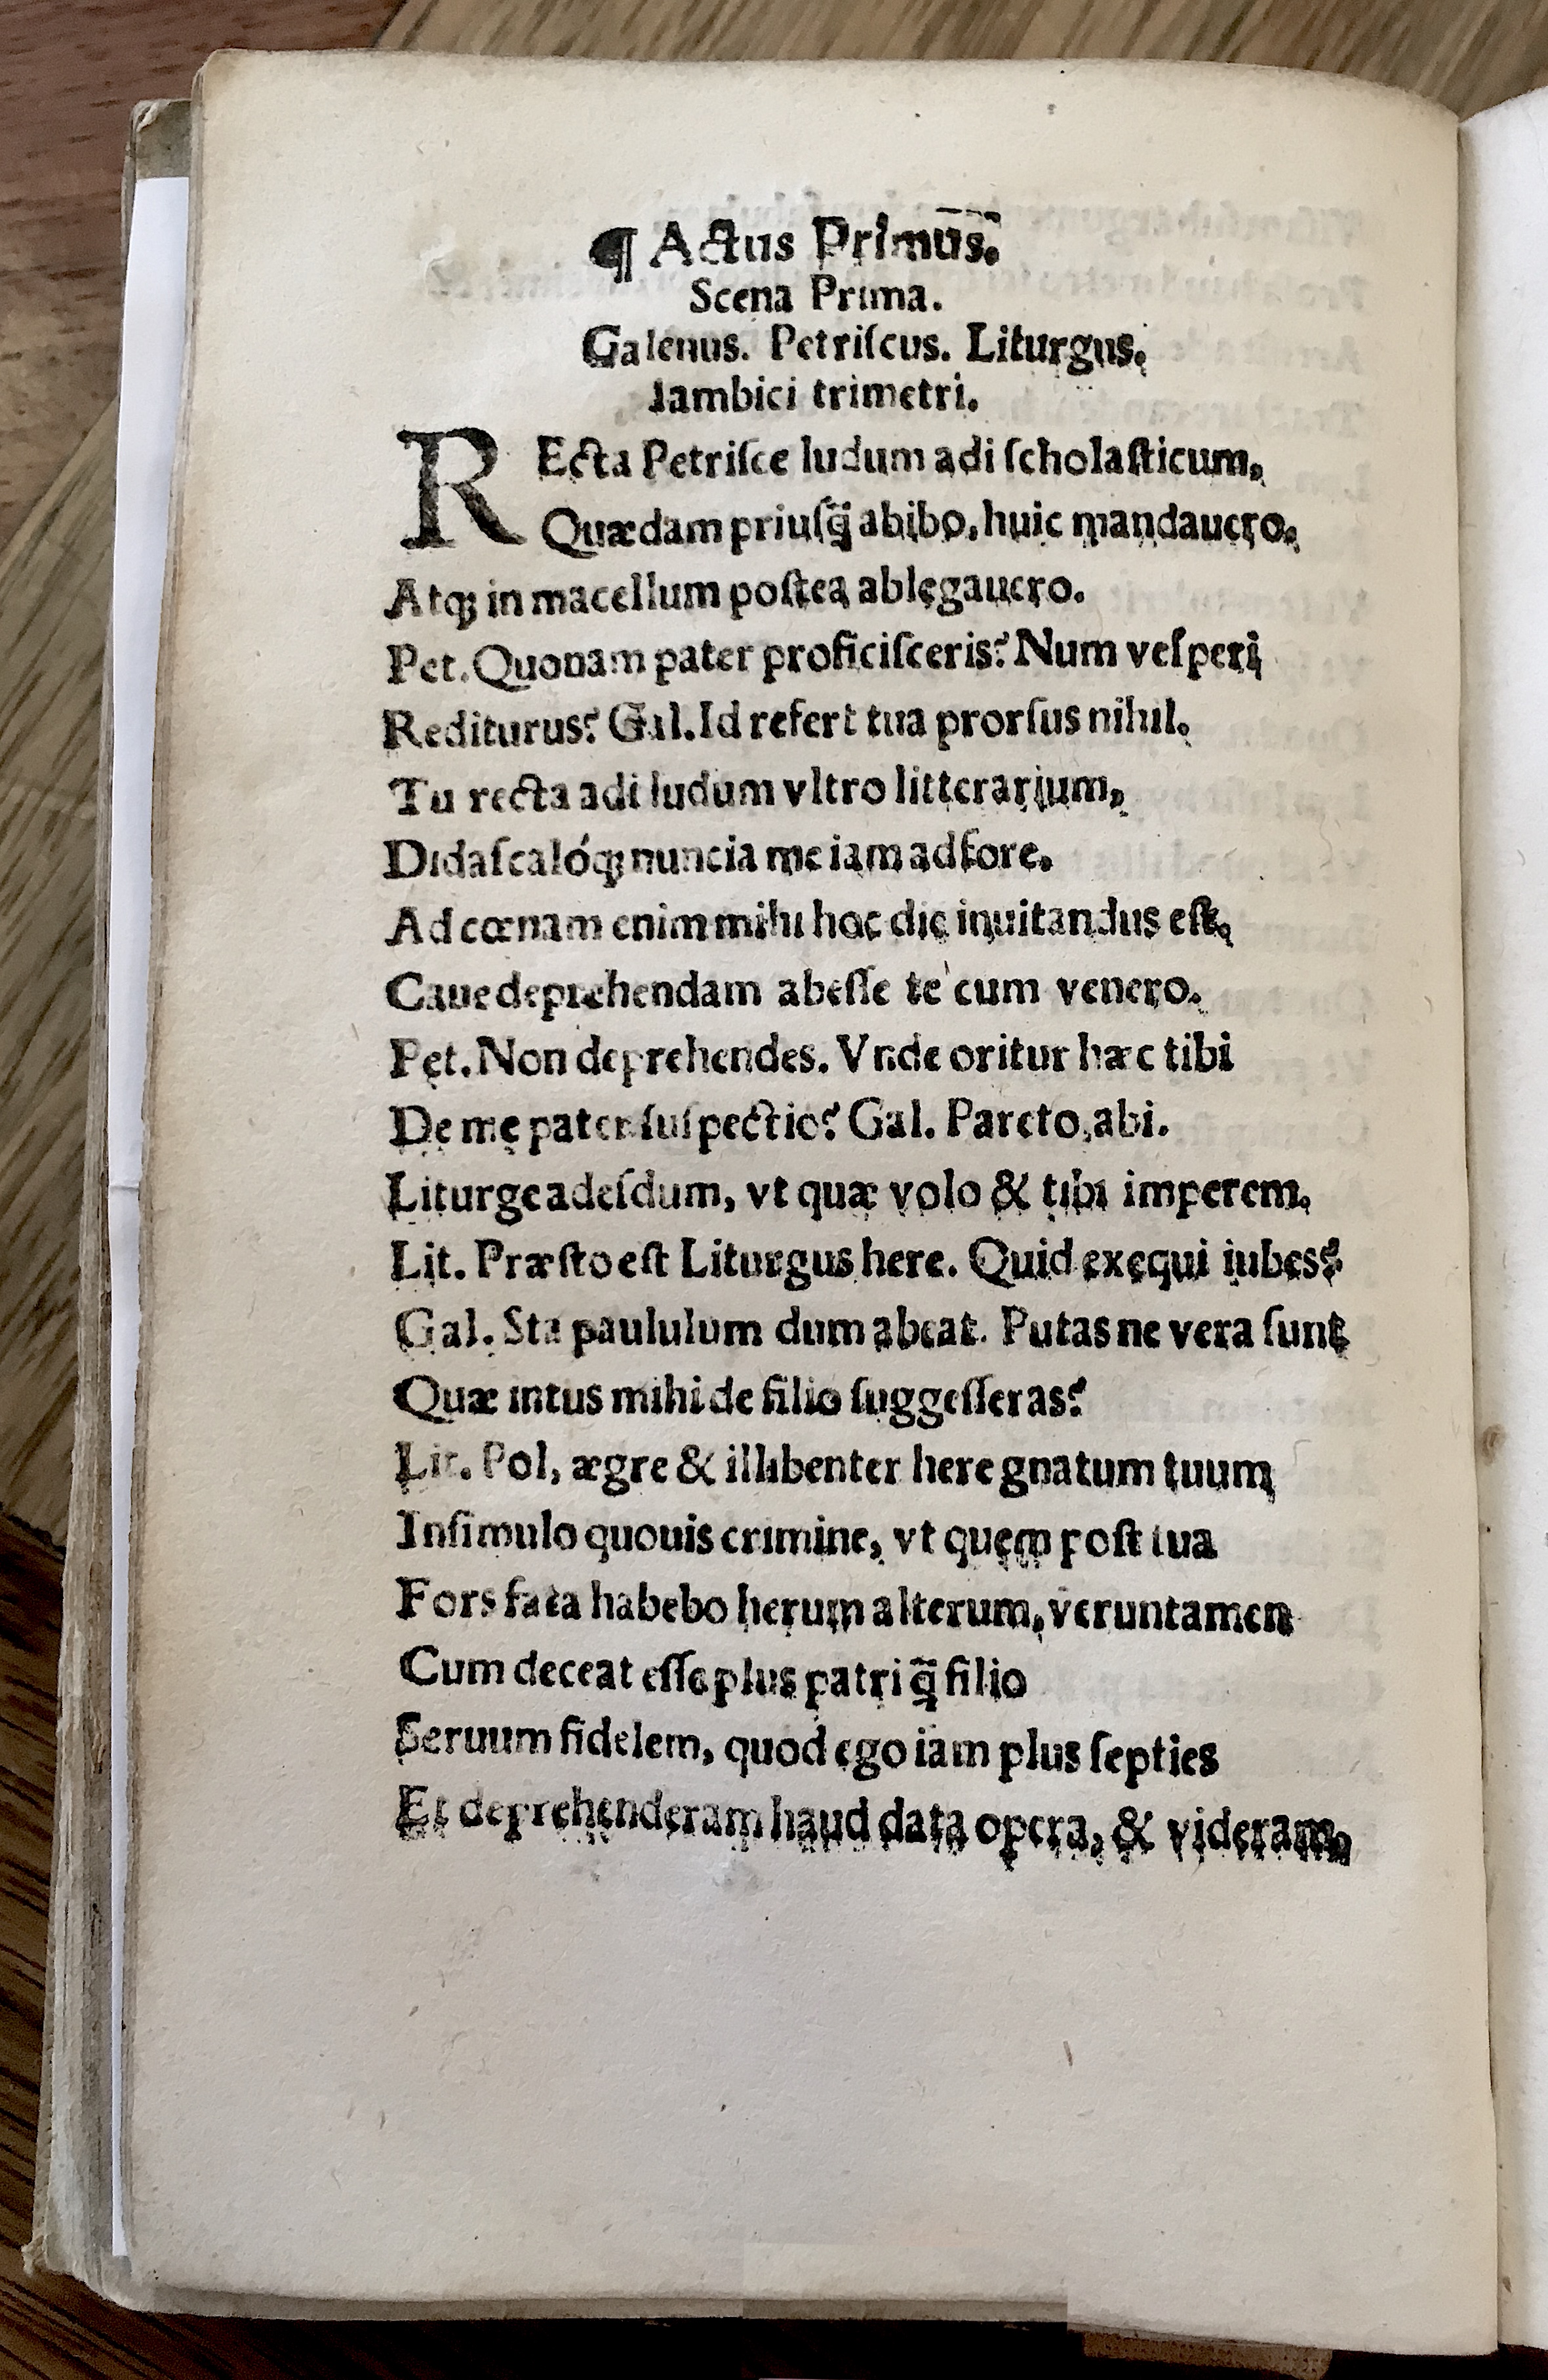 ¶ Actus Primus.
Scena Prima.
Galenus. Petriſcus. Liturgus.
Iambici trimetri.
REcta Petriſce ludum adi ſcholaſticum,
Quædam priuſq̃ abibo, huic mandauero.
Atq; in macellum poſtea ablegauero.
Pet. Quonam pater proficiſceris? Num veſperi
Rediturus? Gal. Id refert tua prorſus nihil.
Tu recta adi ludum vltro litterarium,
Didaſcalóq; nuncia me iam adfore.
Ad cœnam enim mihi hoc die inuitandus eſt,
Caue deprehendam abeſſe te cum venero.
Pet. Non deprehendes. Vnde oritur hæc tibi
De me pater ſuſpectio? Gal. Pareto, abi.
Liturge adeſdum, vt quæ volo & tibi imperem.
Lit. Præſto eſt Liturgus here. Quid exequi iubes?
Gal. Sta paululum dum abeat. Putas ne vera ſunt
Quæ intus mihi de filio ſuggeſſeras?
Lit. Pol, ægre & illibenter here gnatum tuum
Inſimulo quouis crimine, vt quem poſt tua
Fors fata habebo herum alterum, veruntamen
Cum deceat eſſe plus patri q̃ filio
Seruum fidelem, quod ego iam plus ſepties
Et deprehenderam haud data opera, & videram,